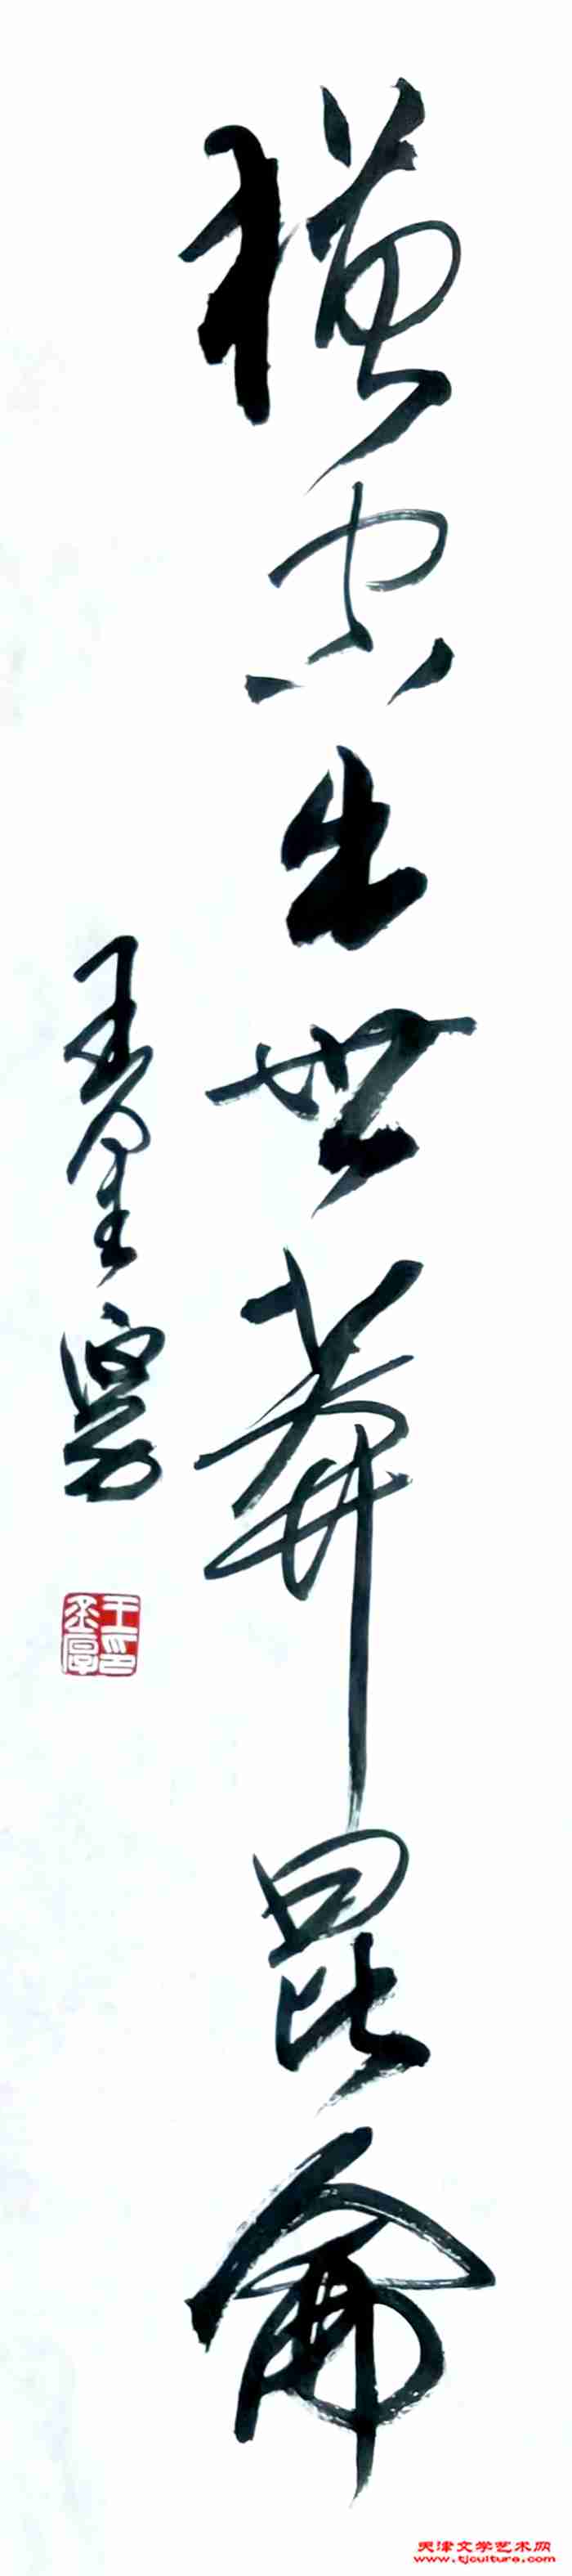 横空出世莽昆侖
王金厚
王印
金厚
天津文学艺术网
www.tjculture.com